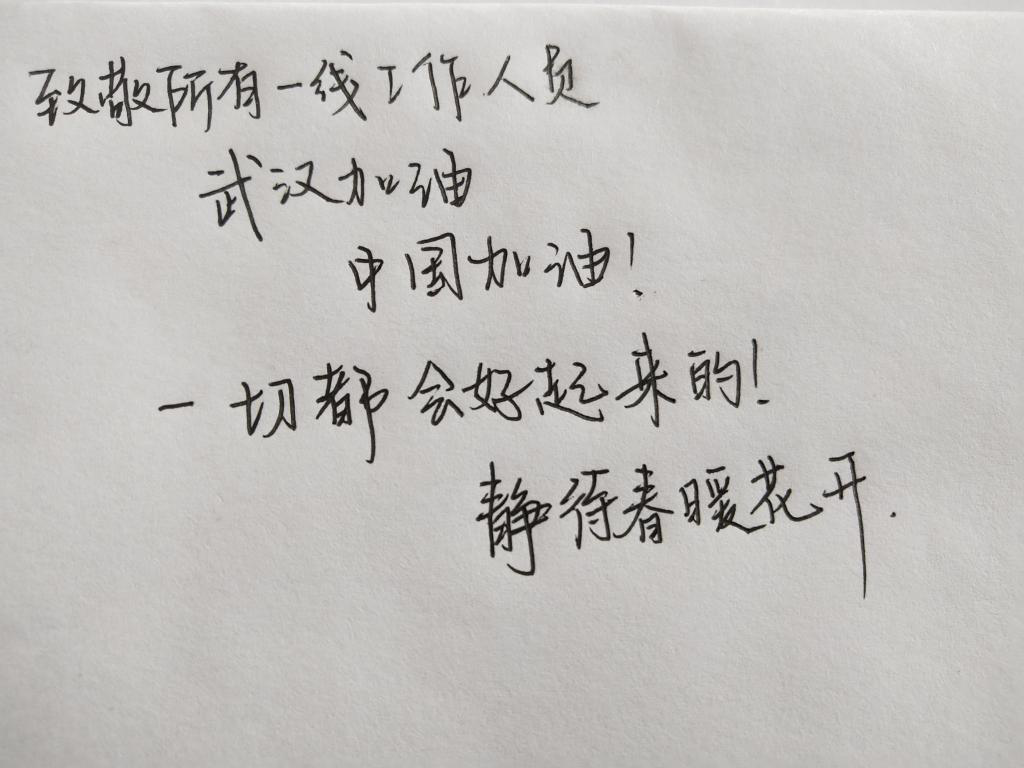 致敬所有一线工作人员
武汉加油
中国加油!
一切都会好起来的!
静待春暖花开.